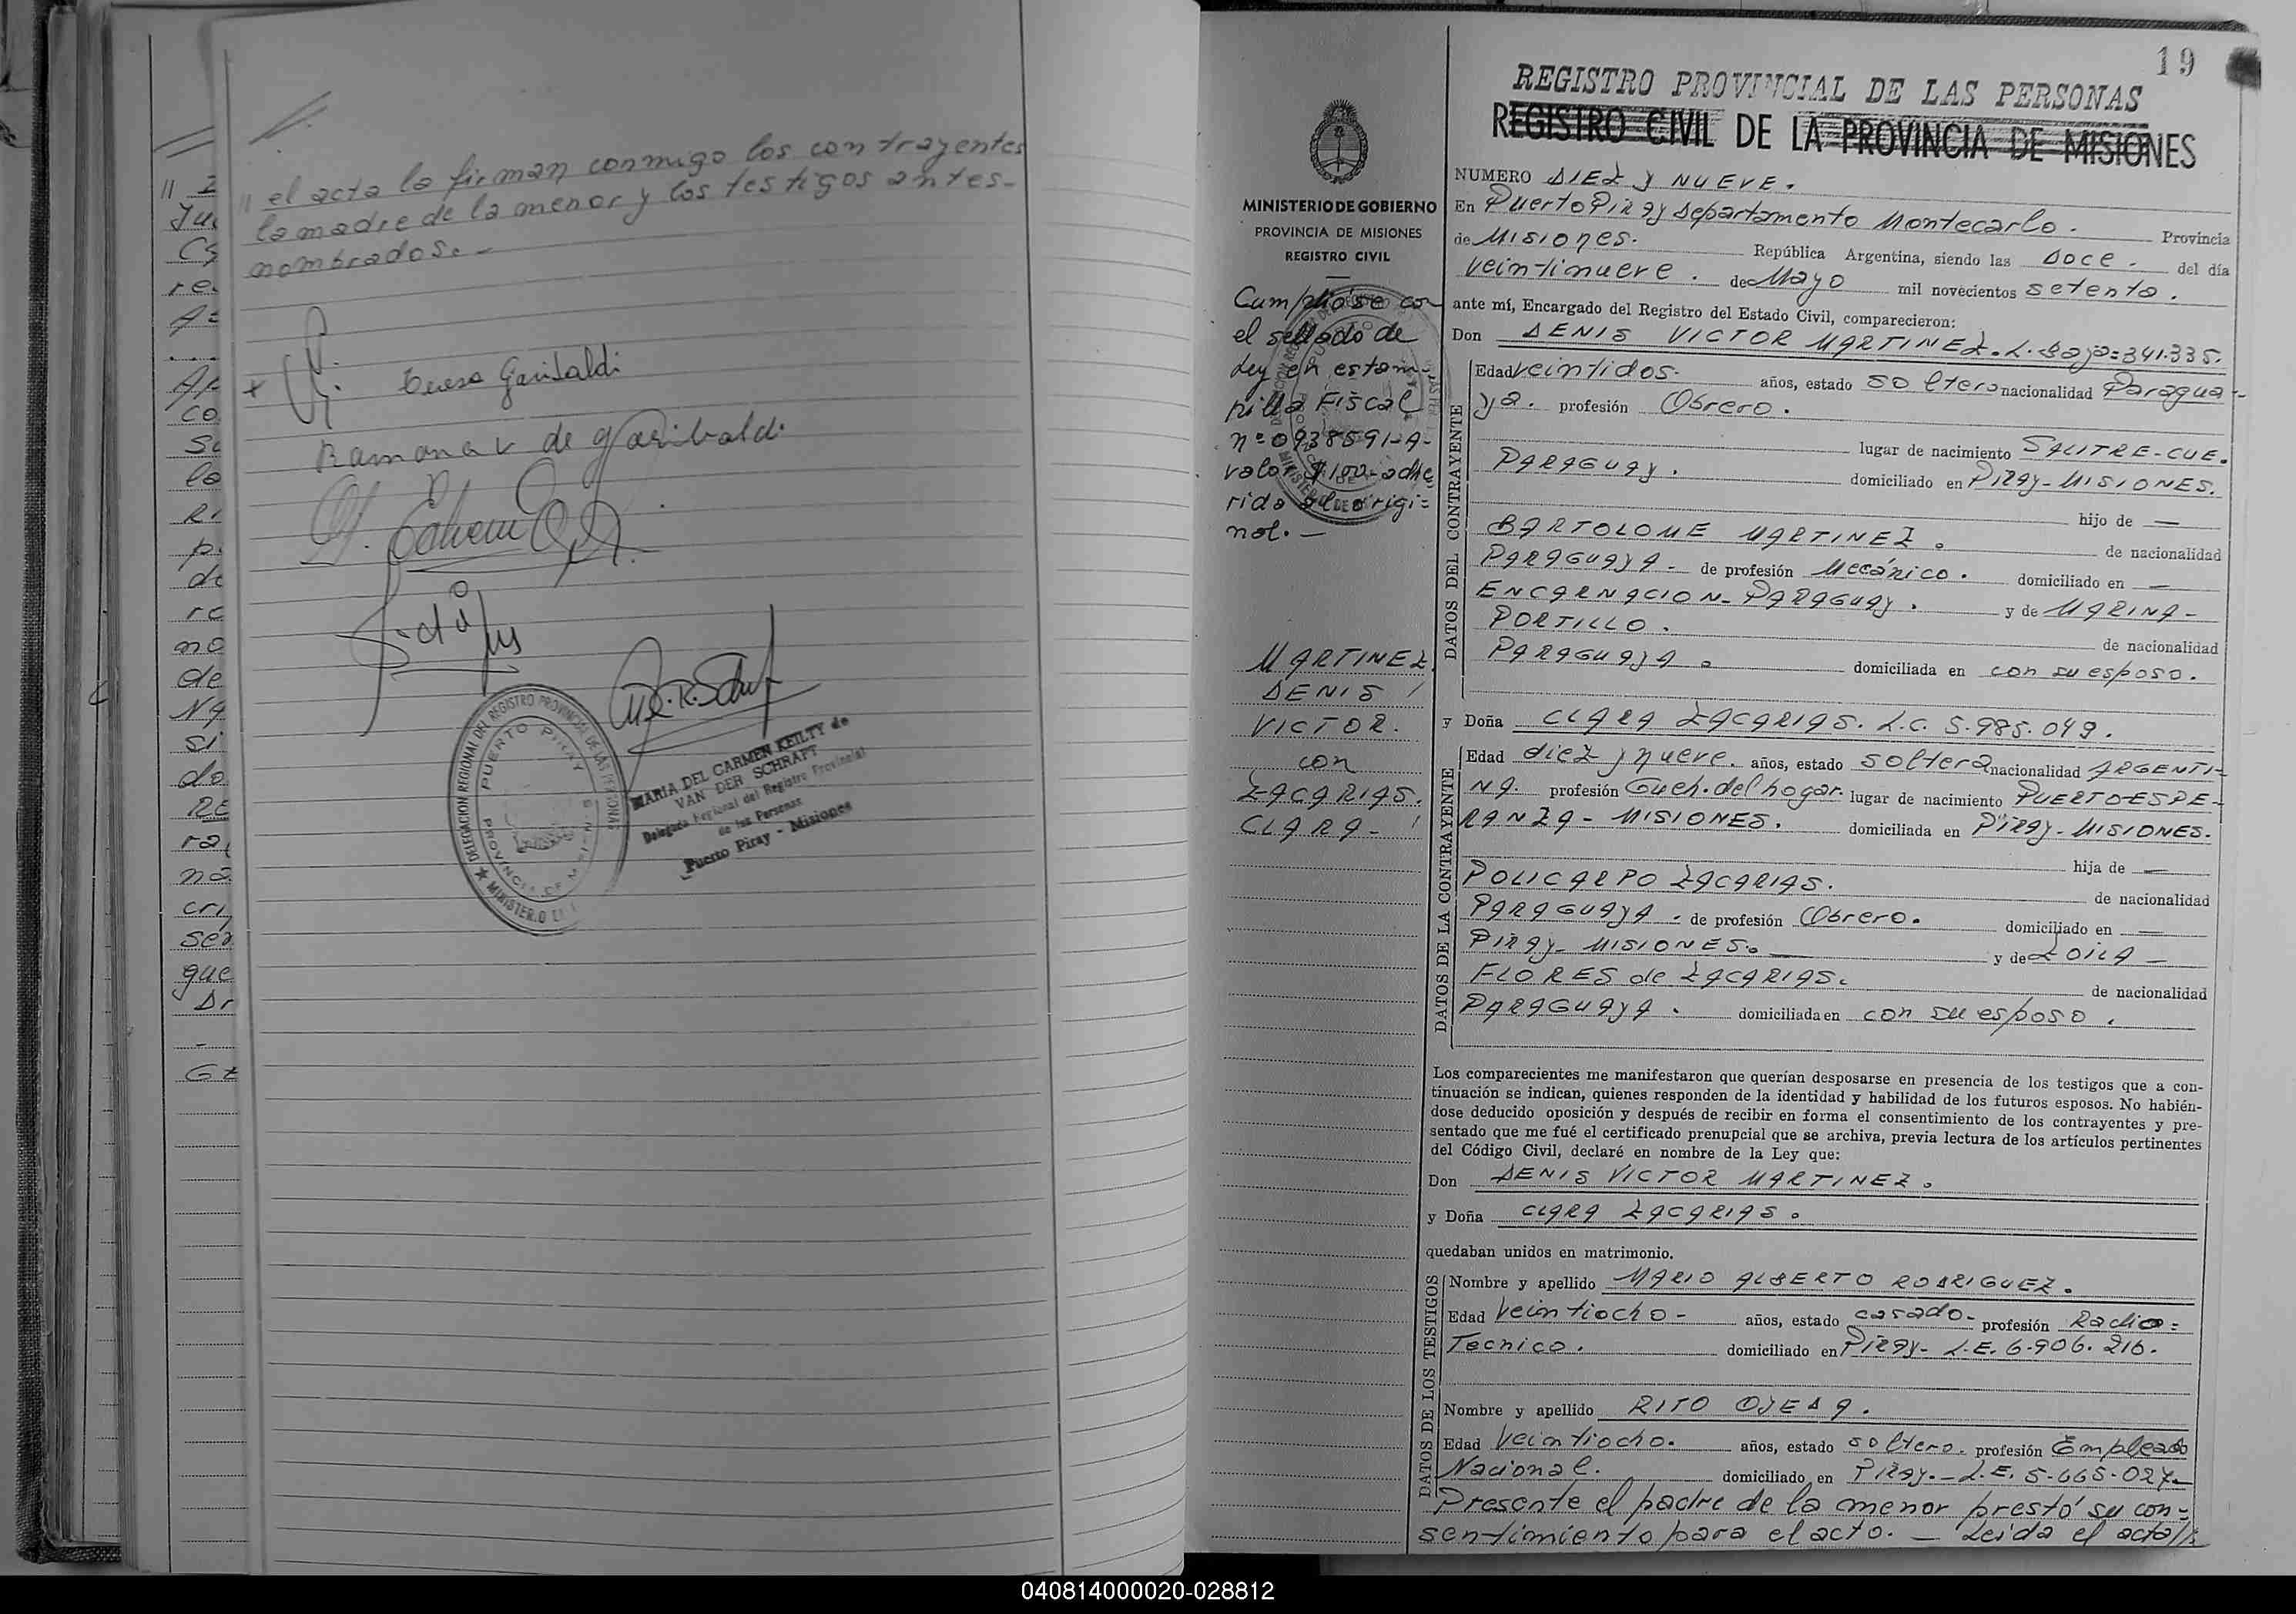 // el acta la firman conmigo los contrayentes
la madre de la menor y los testigos antes-
nombrados.-
Teresa Garibaldi
Ramona V de Garibaldi
DELEGACION REGIONAL DEL REGISTRO PROVINCIAL DE LAS PERSONAS
PUERTO PIRAY
PROVINCIA DE
MARIA DEL CARMEN KEILTY de
VAN DER SCHRAFT
Delegada Regional del Registro Provincial
de las Personas
Puerto Piray - Misiones
// I
Jua
re
co
la
p.
de
no
de
si
do
ra
na
cri
ser
que
19
REGISTRO PROVINCIAL DE LAS PERSONAS
REGISTRO CIVIL DE LA PROVINCIA DE MISIONES
MINISTERIO DE GOBIERNO
PROVINCIA DE MISIONES
REGISTRO CIVIL
Cumplióse con
el sellado de
Ley en estam-
pilla Fiscal
nº 0938591-A-
valor $ 100- adhe
rida al origi=
nal.-
MARTINEZ
DENIS
VICTOR.
con
ZACARIAS.
CLARA-
NUMERO DIEZ y NUEVE.
En Puerto Piray Departamento Montecarlo. Provincia
de Misiones. República Argentina, siendo las Doce. del día
veintinueve. de Mayo mil novecientos setenta.
ante mí, Encargado del Registro del Estado Civil, comparecieron:
Don DENIS VICTOR MARTINEZ. L. Baja=341.335.
DATOS DEL CONTRAYENTE
Edad veintidos. años, estado soltero nacionalidad Paragua-
ya. profesión Obrero.
lugar de nacimiento SALITRE-CUE.
PARAGUAY. domiciliado en Piray-MISIONES.
hijo de —
BARTOLOME MARTINEZ. de nacionalidad
PARAGUAYA- de profesión Mecánico. domiciliado en —
ENCARNACION-PARAGUAY. y de MARINA-
PORTILLO. de nacionalidad
PARAGUAYA. domiciliada en con su esposo.
y Doña CLARA ZACARIAS. L.C. 5.985.049.
DATOS DE LA CONTRAYENTE
Edad diez y nueve. años, estado soltera nacionalidad ARGENTI-
NA. profesión Queh. del hogar. lugar de nacimiento PUERTO ESPE-
RANZA-MISIONES. domiciliada en PIRAY-MISIONES.
hija de —
POLICARPO ZACARIAS. de nacionalidad
PARAGUAYA. de profesión Obrero. domiciliado en —
PIRAY-MISIONES. y de ZOILA-
FLORES de ZACARIAS. de nacionalidad
PARAGUAYA. domiciliada en con su esposo.
Los comparecientes me manifestaron que querían desposarse en presencia de los testigos que a con-
tinuación se indican, quienes responden de la identidad y habilidad de los futuros esposos. No habién-
dose deducido oposición y después de recibir en forma el consentimiento de los contrayentes y pre-
sentado que me fué el certificado prenupcial que se archiva, previa lectura de los artículos pertinentes
del Código Civil, declaré en nombre de la Ley que:
Don DENIS VICTOR MARTINEZ.
y Doña CLARA ZACARIAS.
quedaban unidos en matrimonio.
DATOS DE LOS TESTIGOS
Nombre y apellido MARIO ALBERTO RODRIGUEZ.
Edad veintiocho- años, estado casado- profesión Radio=
Tecnico. domiciliado en PIRAY- L.E. 6.906.216.
Nombre y apellido RITO OJEDA.
Edad veintiocho. años, estado soltero. profesión Empleado
Nacional. domiciliado en PIRAY.-L.E. 5.665.027-
Presente el padre de la menor prestó su con=
sentimiento para el acto.- Leida el acta//
040814000020-028812